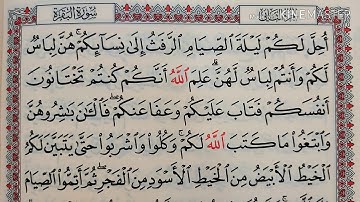 سُورَةُ الْبَقَرَةِ
أُحِلَّ لَكُمْ لَيْلَةَ ٱلصِّيَامِ ٱلرَّفَثُ إِلَىٰ نِسَآئِكُمْ ۚ هُنَّ لِبَاسٌ
لَّكُمْ وَأَنتُمْ لِبَاسٌ لَّهُنَّ ۗ عَلِمَ ٱللَّهُ أَنَّكُمْ كُنتُمْ تَخْتَانُونَ
أَنفُسَكُمْ فَتَابَ عَلَيْكُمْ وَعَفَا عَنكُمْ ۖ فَٱلْـَٰٔنَ بَـٰشِرُوهُنَّ
وَٱبْتَغُوا۟ مَا كَتَبَ ٱللَّهُ لَكُمْ ۚ وَكُلُوا۟ وَٱشْرَبُوا۟ حَتَّىٰ يَتَبَيَّنَ لَكُمُ
ٱلْخَيْطُ ٱلْأَبْيَضُ مِنَ ٱلْخَيْطِ ٱلْأَسْوَدِ مِنَ ٱلْفَجْرِ ۖ ثُمَّ أَتِمُّوا۟ ٱلصِّيَامَ